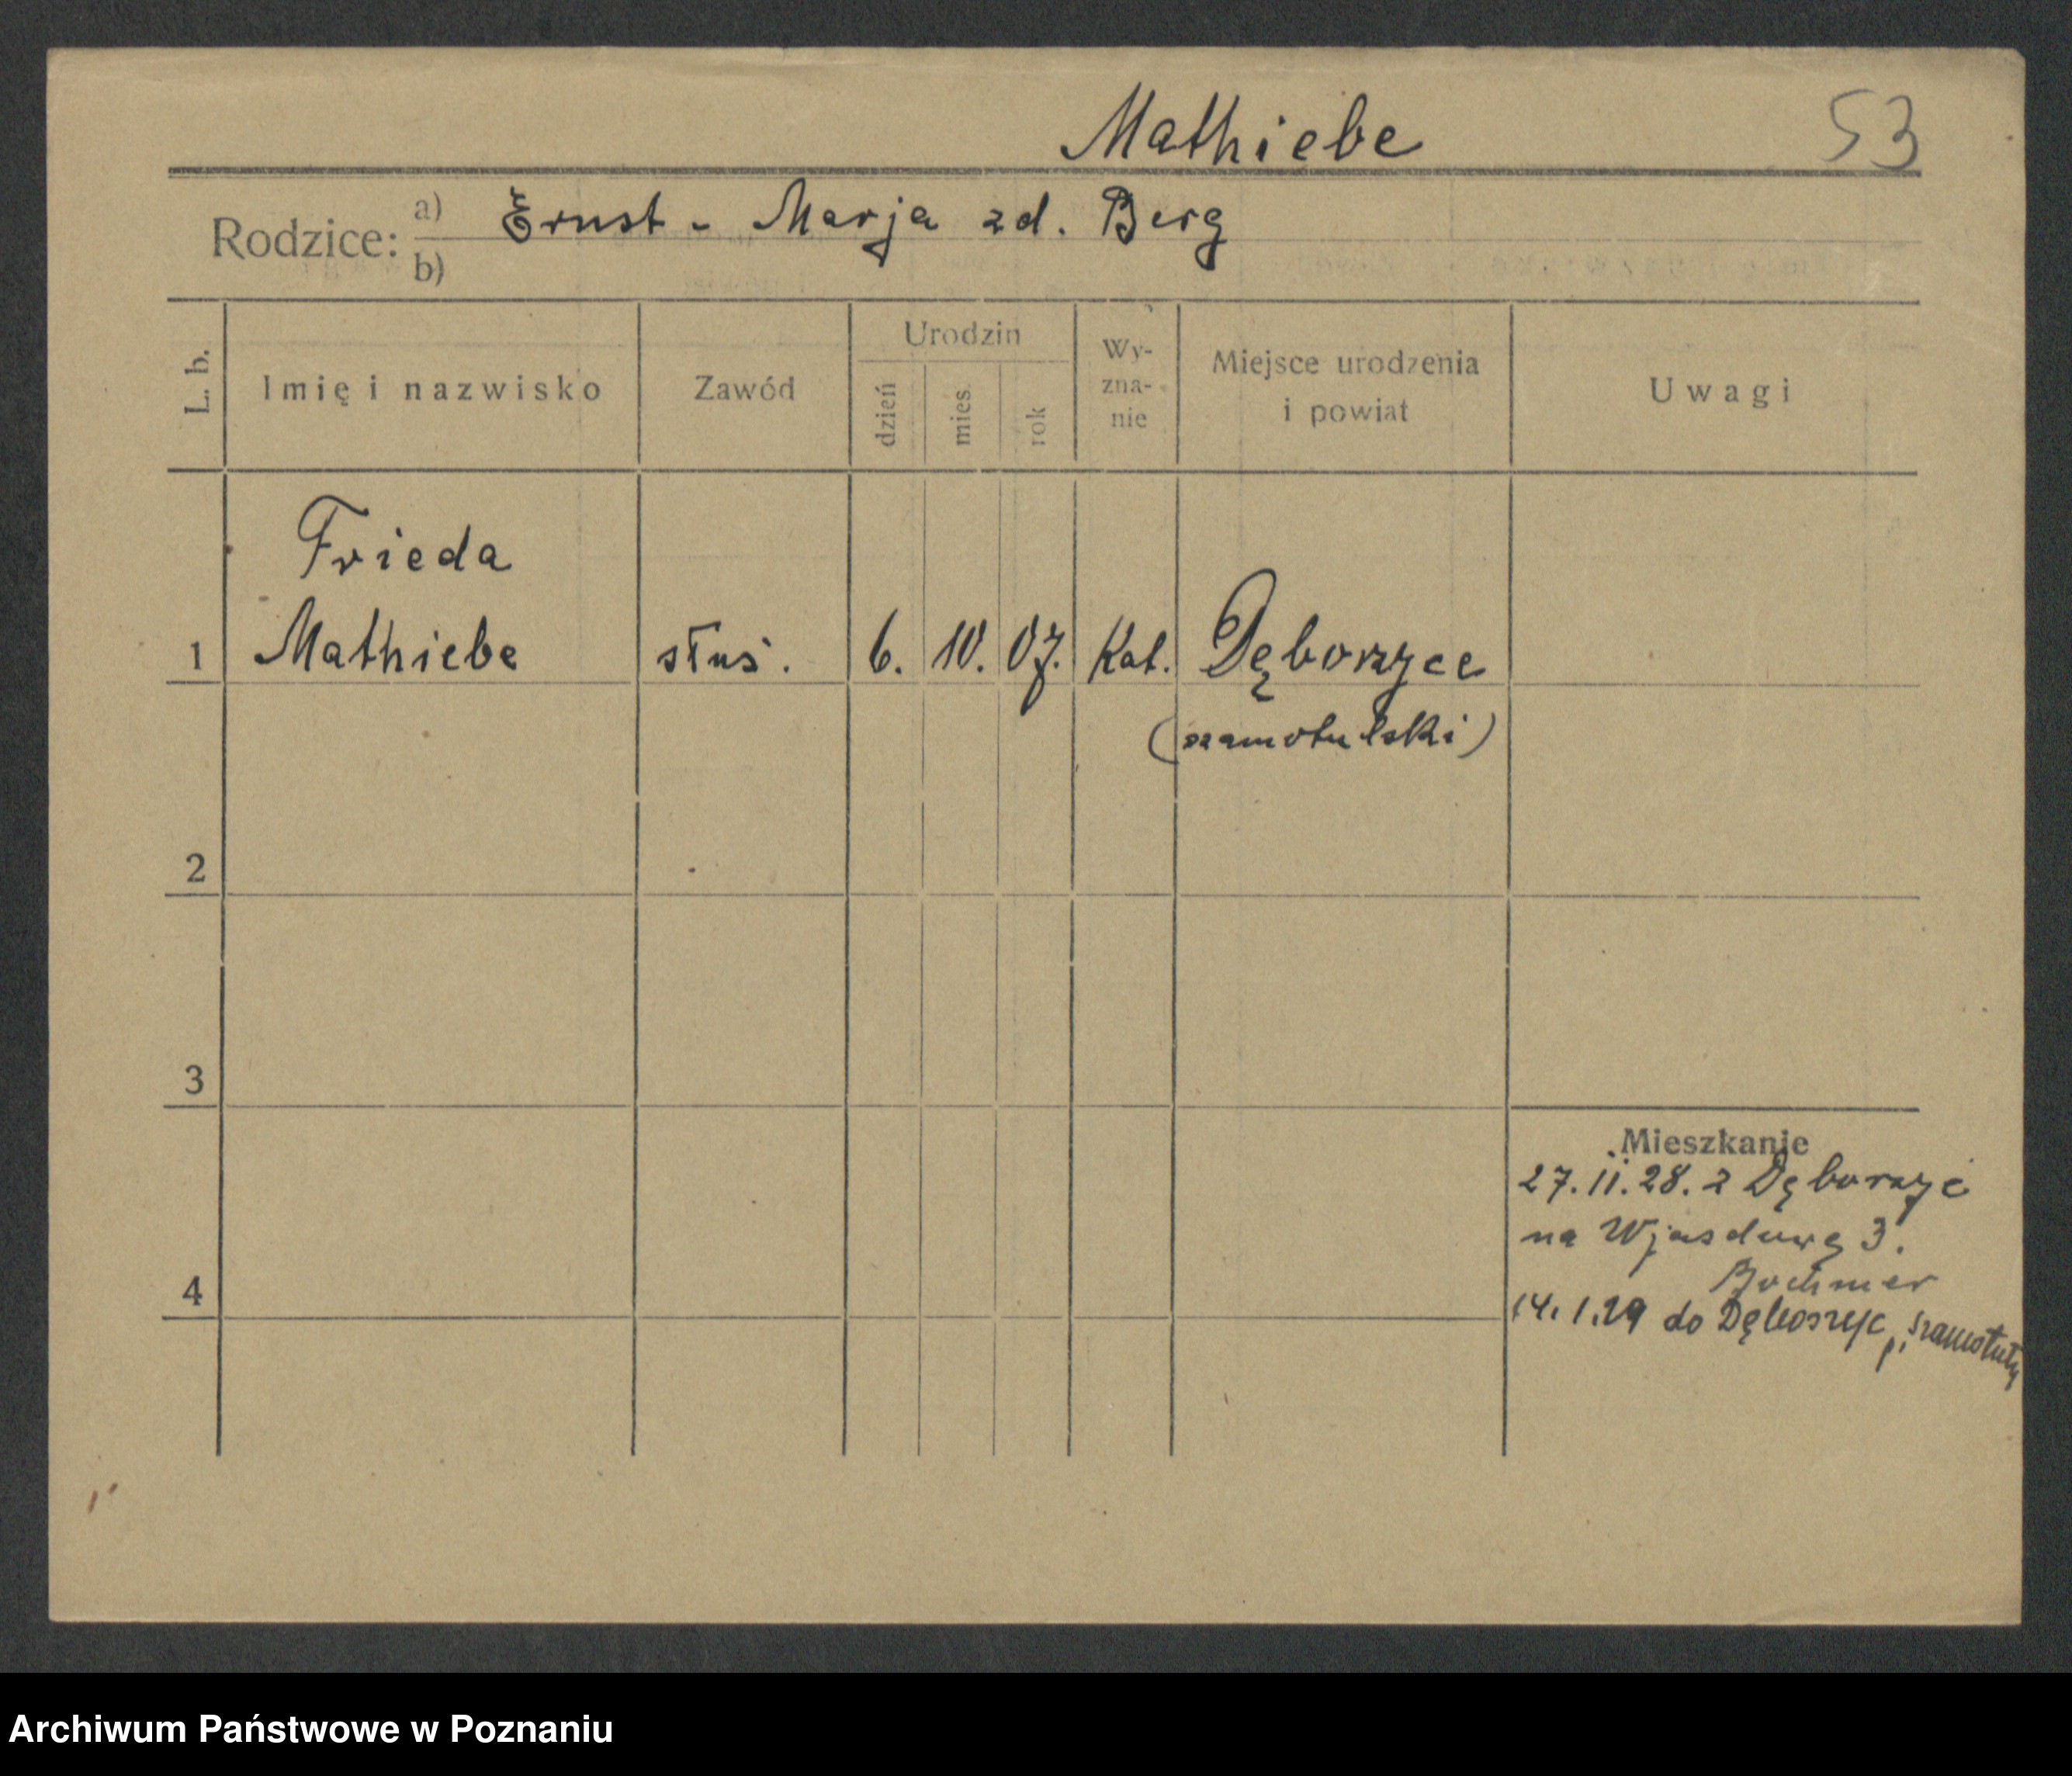 Mathiebe
53
Rodzice: a) Ernst - Marja zd. Berg
b)
L. b.
Imię i nazwisko
Zawód
Urodzin
dzień
mies.
rok
Wy-
zna-
nie
Miejsce urodzenia
i powiat
Uwagi
Frieda
1 Mathiebe służ. 6. 10. 07. Kat. Dęborzyce
(szamotulski)
2
3
Mieszkanie
27.11.28. z Dęborzyc
na Wjazdową 3.
4
14.1.29 do Dęborzyc p. Szamotuły
Archiwum Państwowe w Poznaniu